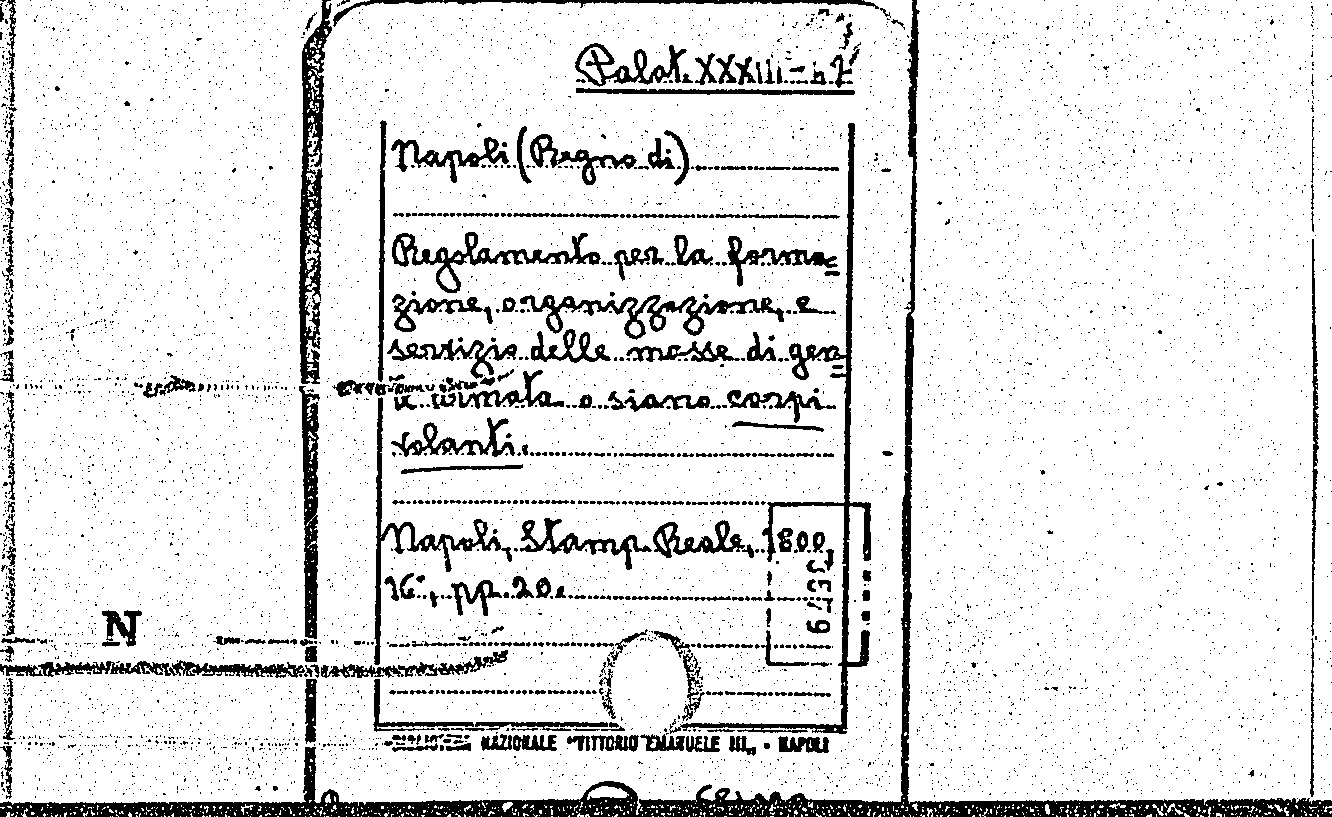 Palat. XXXIII-
Napoli (Regno di)
Regolamento per la forma=
zione, organizzazione, e
servizio delle masse di gen=
te armata o siano corpi
volanti.
Napoli, Stamp. Reale, 1800,
16°, pp. 20.
N
BIBLIOTECA NAZIONALE "VITTORIO EMANUELE III„ - NAPOLI